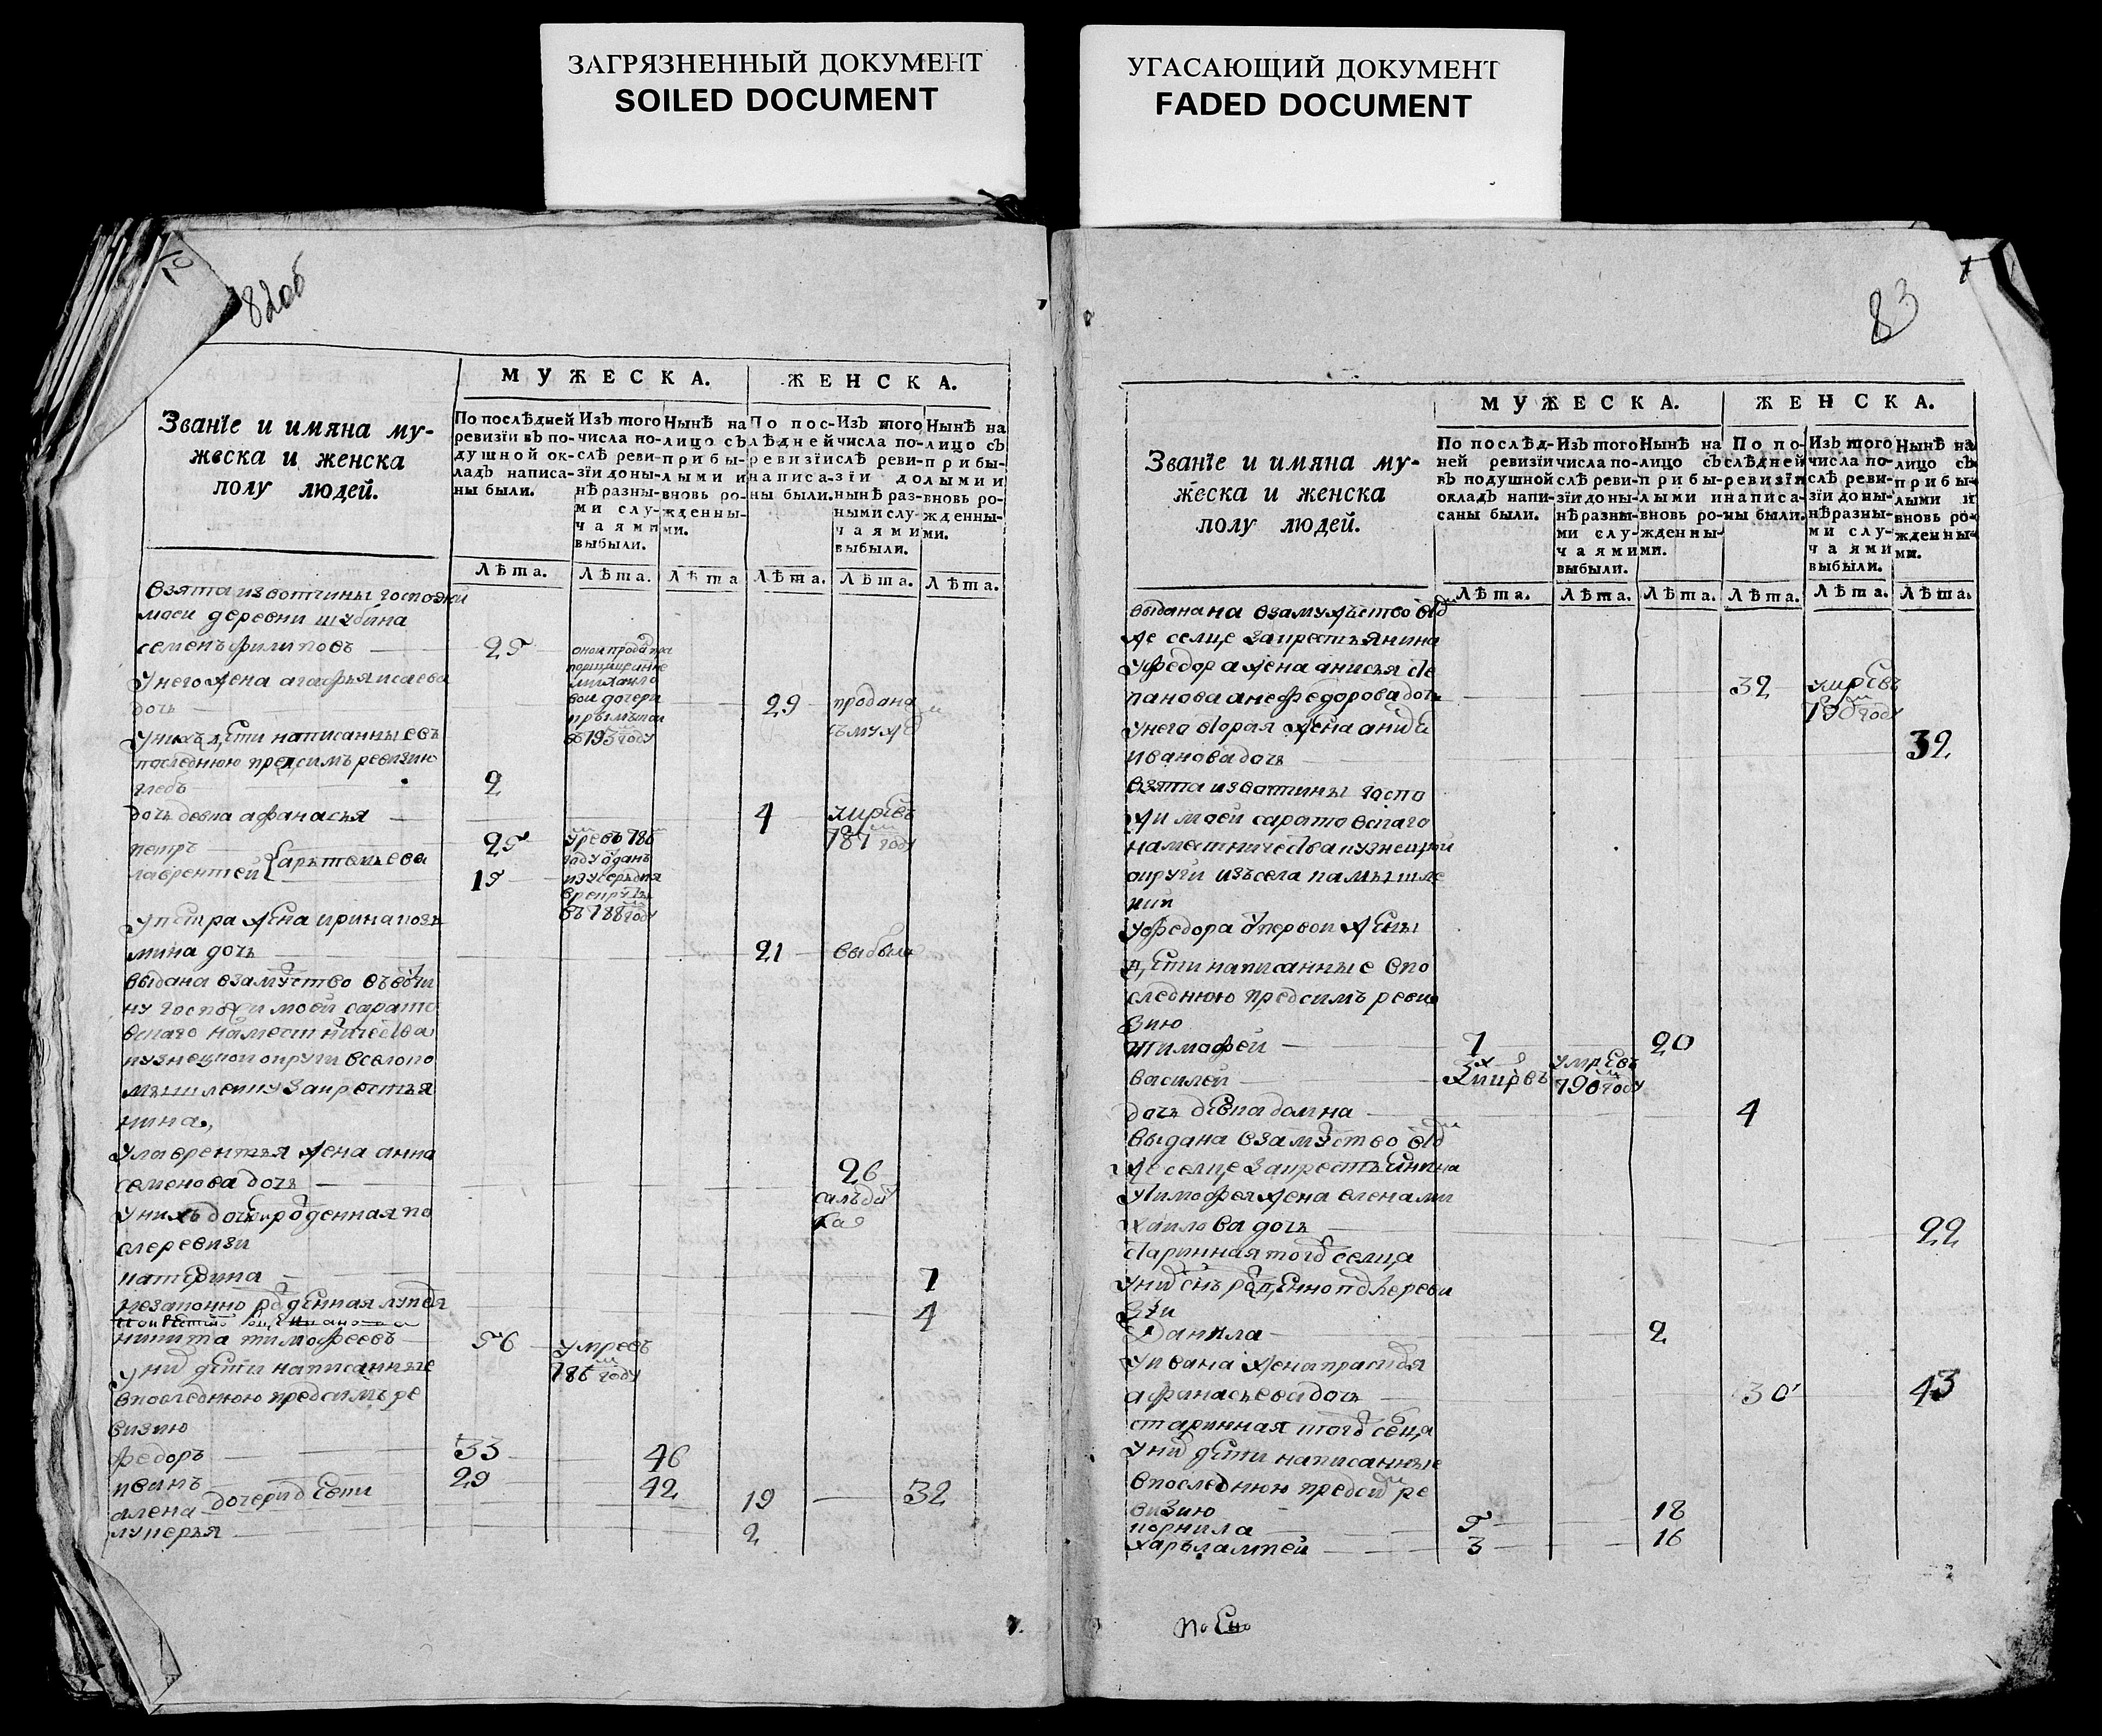 ЗАГРЯЗНЕННЫЙ ДОКУМЕНТ
SOILED DOCUMENT
УГАСАЮЩИЙ ДОКУМЕНТ
FADED DOCUMENT
82об
Званїе и имяна му-
жеска и женска
полу людей.
МУЖЕСКА.
ЖЕНСКА.
По послѣдней
ревизїи въ по-
душной ок-
ладъ написа-
ны были.
Изъ того
числа по-
слѣ реви-
зїи доны-
нѣ разны-
ми слу-
чаями
выбыли.
Нынѣ на
лицо съ
прибы-
лыми и
вновь ро-
жденны-
ми.
По пос-
лѣдней
ревизїи
написа-
ны были.
Изъ того
числа по-
слѣ реви-
зїи до
нынѣ раз-
ными слу-
чаями
выбыли.
Нынѣ на
лицо съ
прибы-
лыми и
вновь ро-
жденны-
ми.
Лѣта. Лѣта. Лѣта Лѣта. Лѣта. Лѣта.
взята извотчины госпожи
моеи деревни шубина
семенъ филиповъ 25
унего жена агафья исаева
дочь 29 продана
смужем
в 793 году
унихъ дети написанные въ
последнюю предсимъ ревизию
глебъ 2
дочь девка афанасья 4 умре въ
787 году
петръ 25
лаврентей артемьева 15
въ 788 году
упетра жена ирина козь
мина дочь 21 выбыла
выдана взамуство въ вотчи
ну госпожи моей сарато
вскаго наместничества
кузнецкои округи вселопо
мышлеику закрестья
нина,
улаврентья жена анна
семенова дочь 26
унихъ дочь рожденная по
слеревизи
катерина 7
незаконно рожденная лукерья 4
никита тимофеевъ 56 умре въ
786 году
уних дети написанные
впоследнюю предсимъ ре
визию
федоръ 33 46
иванъ 29 42
алена дочерид 19 32
лукерья 2
83
Званїе и имяна му-
жеска и женска
полу людей.
МУЖЕСКА.
ЖЕНСКА.
По послѣд-
ней ревизїи
въ подушной
окладъ напи-
саны были.
Изъ того
числа по-
слѣ реви-
зїи доны-
нѣ разны-
ми слу-
чаями
выбыли.
Нынѣ на
лицо съ
прибы-
лыми и
вновь ро-
жденны-
ми.
По по-
слѣдней
ревизїи
написа-
ны были.
Изъ того
числа по-
слѣ реви-
зїи доны-
нѣ разны-
ми слу-
чаями
выбыли.
Нынѣ на
лицо съ
прибы-
лыми и
вновь ро-
жденны-
ми.
Лѣта. Лѣта. Лѣта. Лѣта. Лѣта. Лѣта.
выдана на взамужъство
же селце закрестьянина
уфедора жена анисья сте
панова анефедорова дочь 32 умре въ
790 году
унего вторая жена
иванова дочь 32
взята извотчины госпо
жи моей саратовскаго
наместничества кузнецкой
округи изъ села памышле
уфедора отпервои жены
дети написанные впо
следнюю предсимъ реви
зию
тимофей 7 20
василей умре въ
790 году
дочь девка домна 4
выдана взамуство
же селце закрестьянина
утимофея жена елена ми
хаилова дочь 22
старинная тогож селца
уних сынъ рожденно после реви
зїи
данила 2
уивана жена прасковья
афанасьева дочь 30 43
старинная тогож селца
уних дети написанные
впоследнюю предсим ре
визию
корнила 5 18
харълампей 3 16